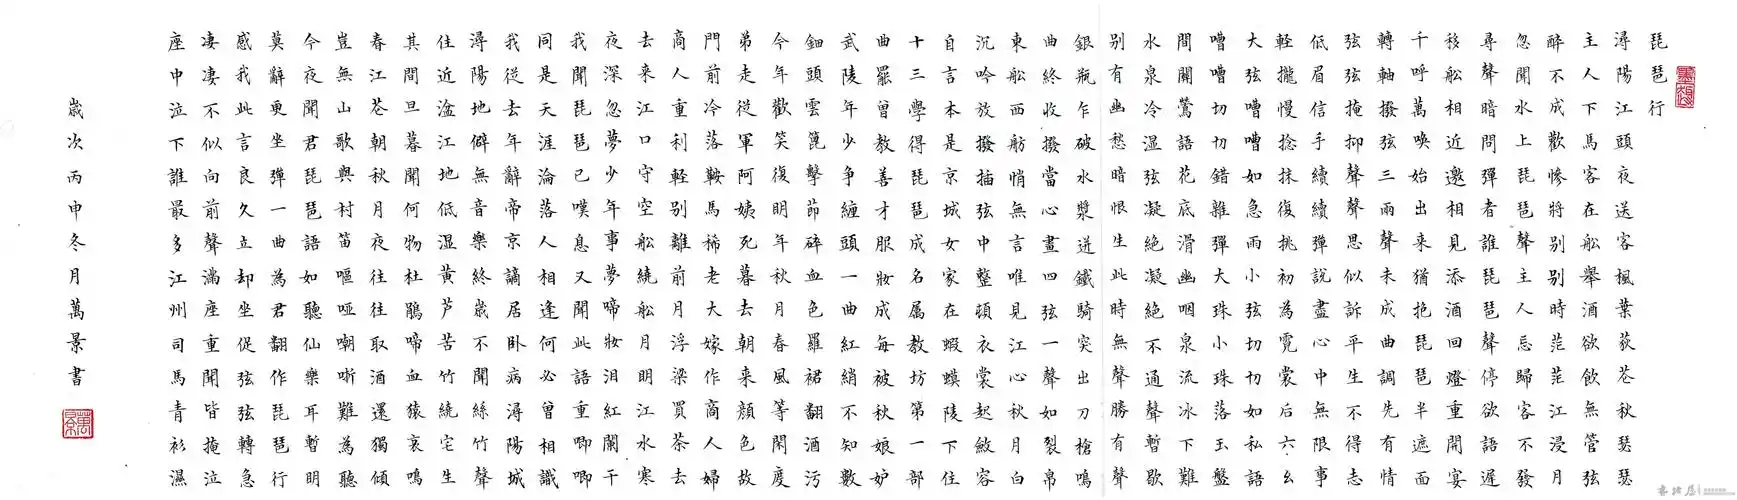 琵琶行
潯陽江頭夜送客楓葉荻花秋瑟瑟
主人下馬客在船舉酒欲飲無管弦
醉不成歡慘將别别時茫茫江浸月
忽聞水上琵琶聲主人忘歸客不發
尋聲暗問彈者誰琵琶聲停欲語遲
移船相近邀相見添酒回燈重開宴
千呼萬喚始出来猶抱琵琶半遮面
轉軸撥弦三兩聲未成曲調先有情
弦弦掩抑聲聲思似訴平生不得志
低眉信手續續彈説盡心中無限事
輕攏慢捻抹復挑初為霓裳后六幺
大弦嘈嘈如急雨小弦切切如私語
嘈嘈切切錯雜彈大珠小珠落玉盤
間關鶯語花底滑幽咽泉流冰下難
水泉冷澀弦凝絶凝絶不通聲暫歇
别有幽愁暗恨生此時無聲勝有聲
銀瓶乍破水漿迸鐵騎突出刀槍鳴
曲終收撥當心畫四弦一聲如裂帛
東船西舫悄無言唯見江心秋月白
沉吟放撥插弦中整頓衣裳起斂容
自言本是京城女家在蝦蟆陵下住
十三學得琵琶成名属教坊第一部
曲罷曾教善才服妝成每被秋娘妒
武陵年少争纏頭一曲紅綃不知數
鈿頭雲篦擊節碎血色羅裙翻酒污
今年歡笑復明年秋月春風等閑度
弟走從軍阿姨死暮去朝来顔色故
門前冷落鞍馬稀老大嫁作商人婦
商人重利輕别離前月浮梁買茶去
去来江口守空船繞船月明江水寒
夜深忽夢少年事夢啼妝泪紅闌干
我聞琵琶已嘆息又聞此語重唧唧
同是天涯淪落人相逢何必曾相識
我從去年辭帝京謫居卧病潯陽城
潯陽地僻無音樂終歲不聞絲竹聲
住近湓江地低湿黄芦苦竹繞宅生
其間旦暮聞何物杜鵑啼血猿哀鳴
春江花朝秋月夜往往取酒還獨傾
豈無山歌與村笛嘔啞嘲哳難為聽
今夜聞君琵琶語如聽仙樂耳暫明
莫辭更坐彈一曲為君翻作琵琶行
感我此言良久立却坐促弦弦轉急
凄凄不似向前聲滿座重聞皆掩泣
座中泣下誰最多江州司馬青衫濕
歲次丙申冬月萬景書